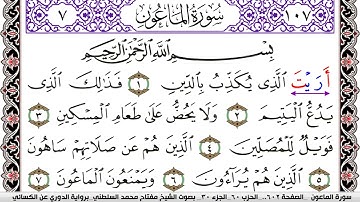 ٧ سُورَةُ المَاعُونَ ١٠٧
بِسْمِ اللَّهِ الرَّحْمَٰنِ الرَّحِيمِ
أَرَيْتَ الَّذِى يُكَذِّبُ بِالدِّينِ ١ فَذَٰلِكَ الَّذِى
يَدُعُّ الْيَتِيمَ ٢ وَلَا يَحُضُّ عَلَىٰ طَعَامِ الْمِسْكِينِ ٣
فَوَيْلٌ لِّلْمُصَلِّينَ ٤ الَّذِينَ هُمْ عَن صَلَاتِهِمْ سَاهُونَ
٥ الَّذِينَ هُمْ يُرَاءُونَ ٦ وَيَمْنَعُونَ الْمَاعُونَ ٧
سورة الماعون الصفحة ٦٠٢.. الحزب ٦٠ الجزء ٣٠ بصوت الشيخ مفتاح محمد السلطني برواية الدوري عن الكسائي